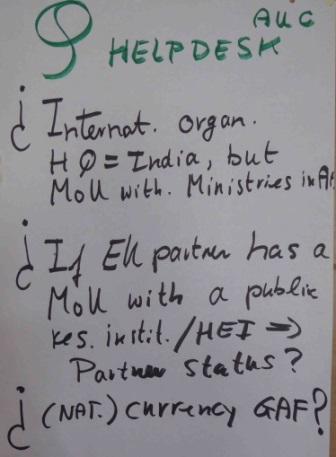 AUC
HELPDESK
¿ Internat. organ.
HQ = India, but
MoU with. Ministries in
¿ If EU partner has a
MoU with a public
res. instit. / HEI =>
Partner status?
¿ (NAT.) currency GAF?